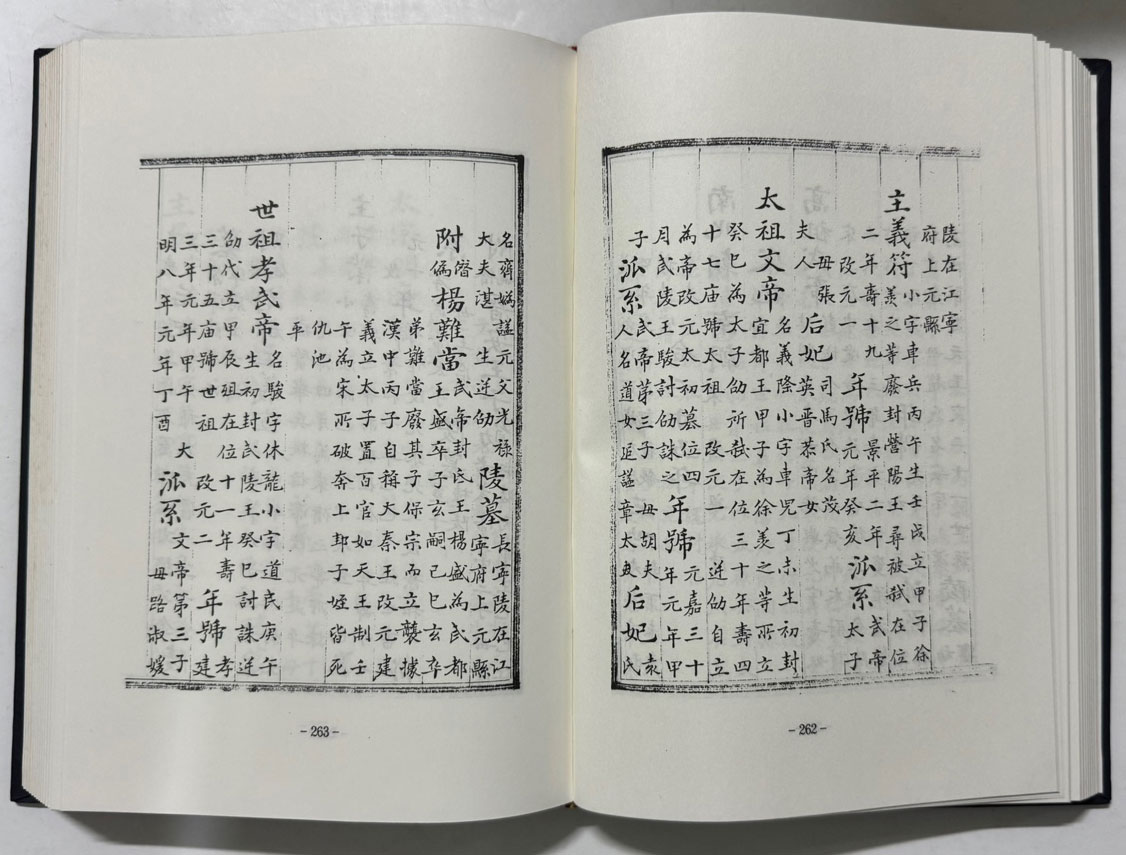 陵在江寧
府上元縣
主義符
小字車兵丙午生壬戌立甲子徐
羨之等廢封營陽王尋被弑在位
二年壽十九
改元一
年號
景平二年
元年癸亥
派系
武帝
太子
母張
夫人
后妃
司馬氏名茂
英晉恭帝女
太祖文帝
名義隆小字車児丁未生初封
宜都王甲子為徐羨之等所立
癸巳為太子劭所弑在位三十年壽四
十七庙號太祖 改元一 逆劭自立
為帝改元太初墓位四
月武陵王駿討劭誅之
年號
元嘉三十
年元年甲
子
派系
武帝第三子 母胡夫
人名道女追諡章太
后妃
袁
氏
-262-
名齊媯諡元父光禄
大夫湛 生逆劭
陵墓
長寧陵在江
寧府上元縣
附
僭
偽
楊難當
武帝封氐王楊盛為武都
王盛卒子玄嗣己巳玄卒
弟難當廢其子保宗而立襲據
漢中丙子自稱大秦王改元建
義立太子置百官如天王制壬
午為宋所破奔上邽子姪皆死
仇池
平
世祖孝武帝
名駿字休龍小字道民庚午
生初封武陵王癸巳討誅逆
劭代立甲辰殂在位十一年壽
三十五庙號世祖 改元二
年號
孝
建
三年元年甲午 大
明八年元年丁酉
派系
文帝第三子
母路淑媛
-263-